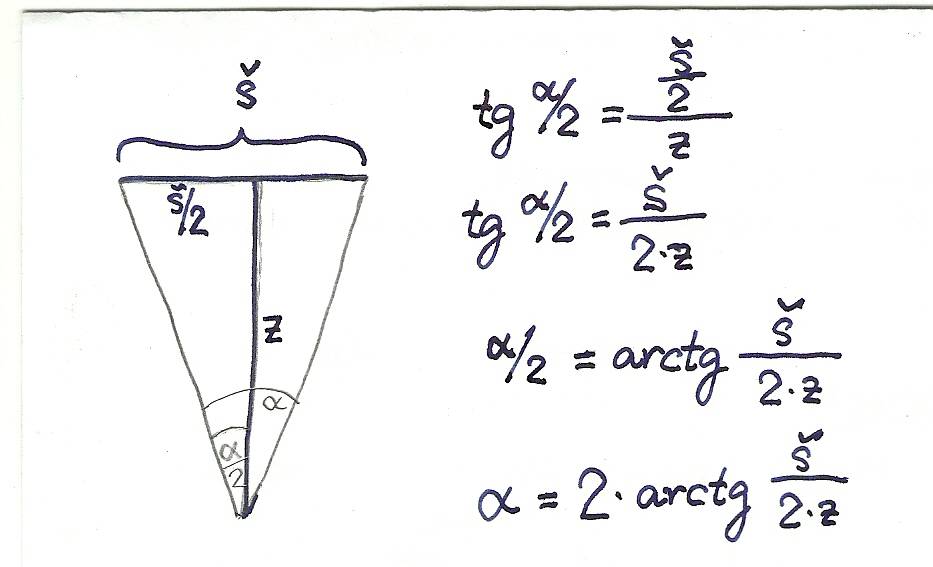 š
š/2
z
α
α/2
tg α/2 = (š/2)/z
tg α/2 = š/(2·z)
α/2 = arctg š/(2·z)
α = 2·arctg š/(2·z)